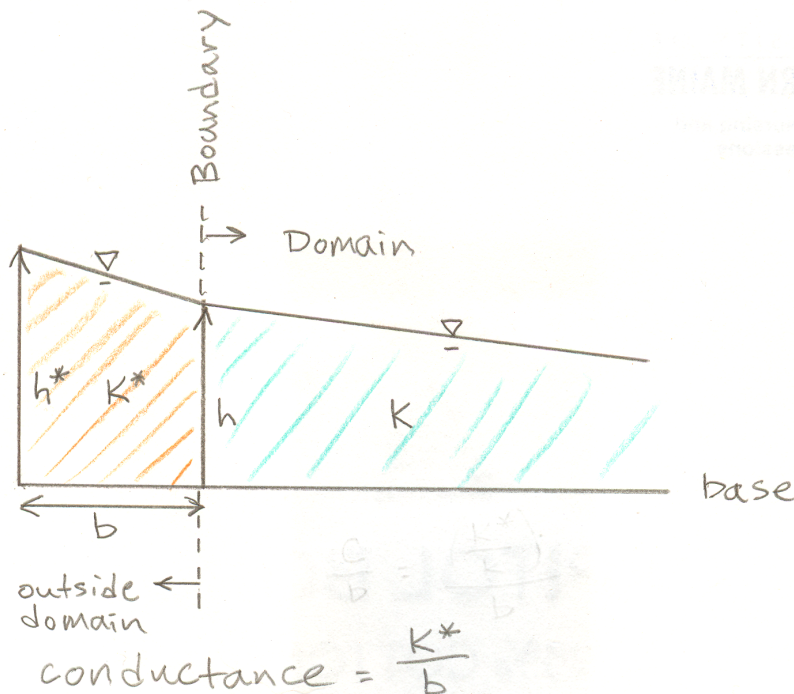 Boundary
Domain
h*
K*
h
K
base
b
outside
domain
conductance = K*/b